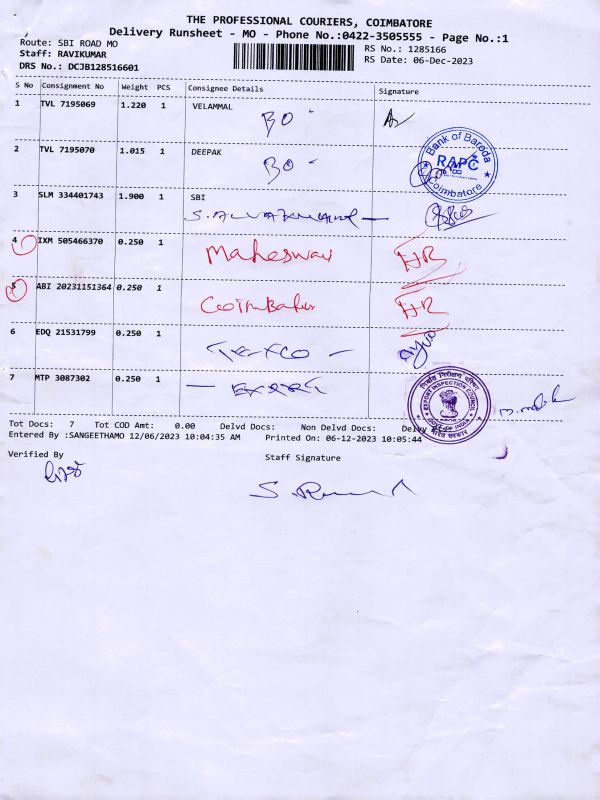 THE PROFESSIONAL COURIERS, COIMBATORE
Delivery Runsheet - MO - Phone No.:0422-3505555 - Page No.:1
Route: SBI ROAD MO
RS No.: 1285166
Staff: RAVIKUMAR
RS Date: 06-Dec-2023
DRS No.: DCJB128516601
S No Consignment No Weight PCS Consignee Details Signature
1 TVL 7195069 1.220 1 VELAMMAL
BO
2 TVL 7195070 1.015 1 DEEPAK
BO
Bank of Baroda
RAPC
Coimbatore
3 SLM 334401743 1.900 1 SBI
4 IXM 505466370 0.250 1
Maheswari
HR
5 ABI 20231151364 0.250 1
Coimbatore
HR
6 EDQ 21531799 0.250 1
7 MTP 3087302 0.250 1
EXPORT INSPECTION COUNCIL
Tot Docs: 7 Tot COD Amt: 0.00 Delvd Docs: Non Delvd Docs:
Entered By :SANGEETHAMO 12/06/2023 10:04:35 AM Printed On: 06-12-2023 10:05:44
Verified By
Staff Signature